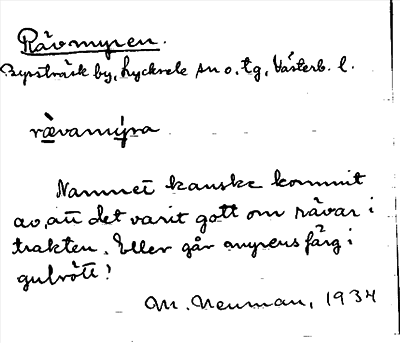 Rävmyren.
Bysträsk by, Lycksele sn o. tg, Västerb. l.
rävamýra
Namnet kanske kommit
av, att det varit gott om rävar i
trakten. Eller går myrens färg i
gulrött!
M. Neuman, 1934